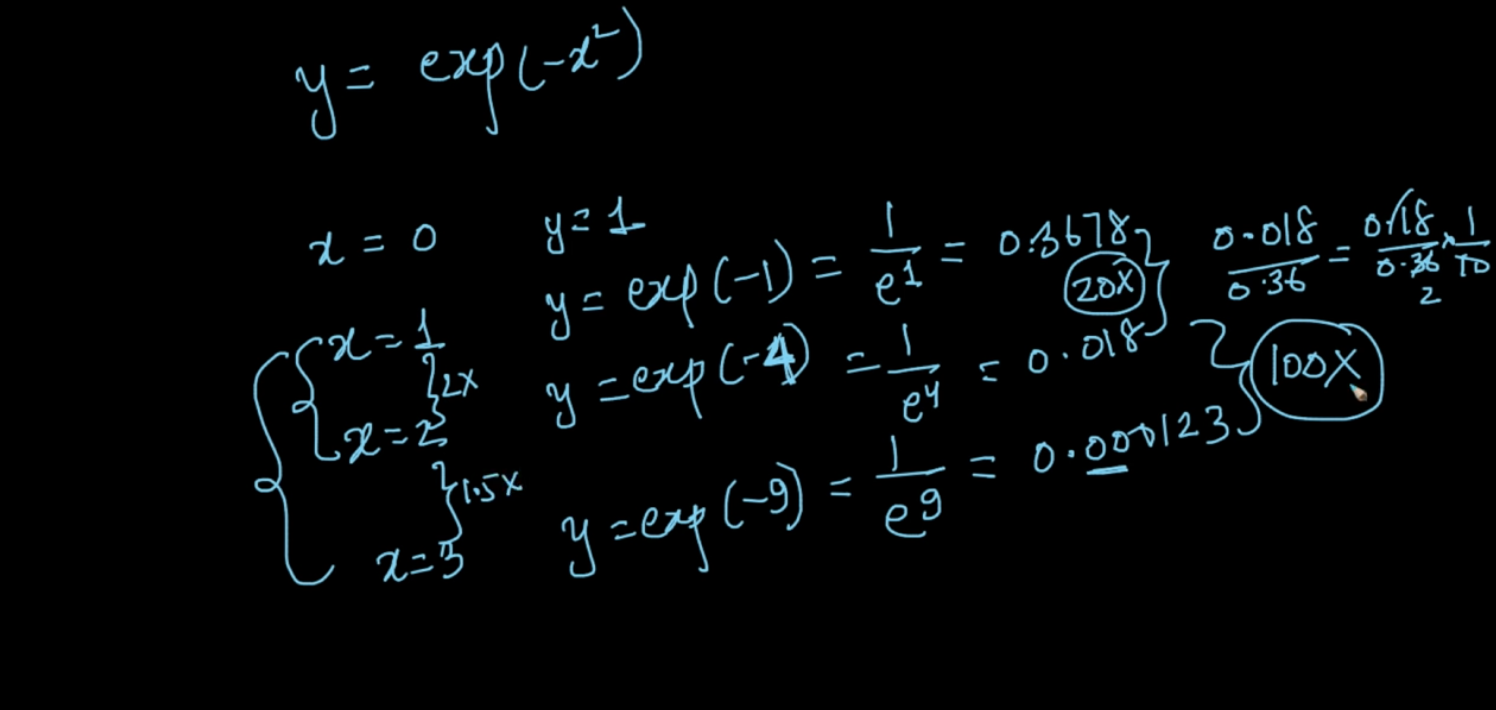 y = exp(-x²)
x = 0 y = 1
x = 1 y = exp(-1) = 1/e¹ = 0.3678 0.018/0.36 = 0.18/0.36 × 1/10
2
20X
2X
x = 2 y = exp(-4) = 1/e⁴ = 0.018
100X
1.5X
x = 3 y = exp(-9) = 1/e⁹ = 0.000123